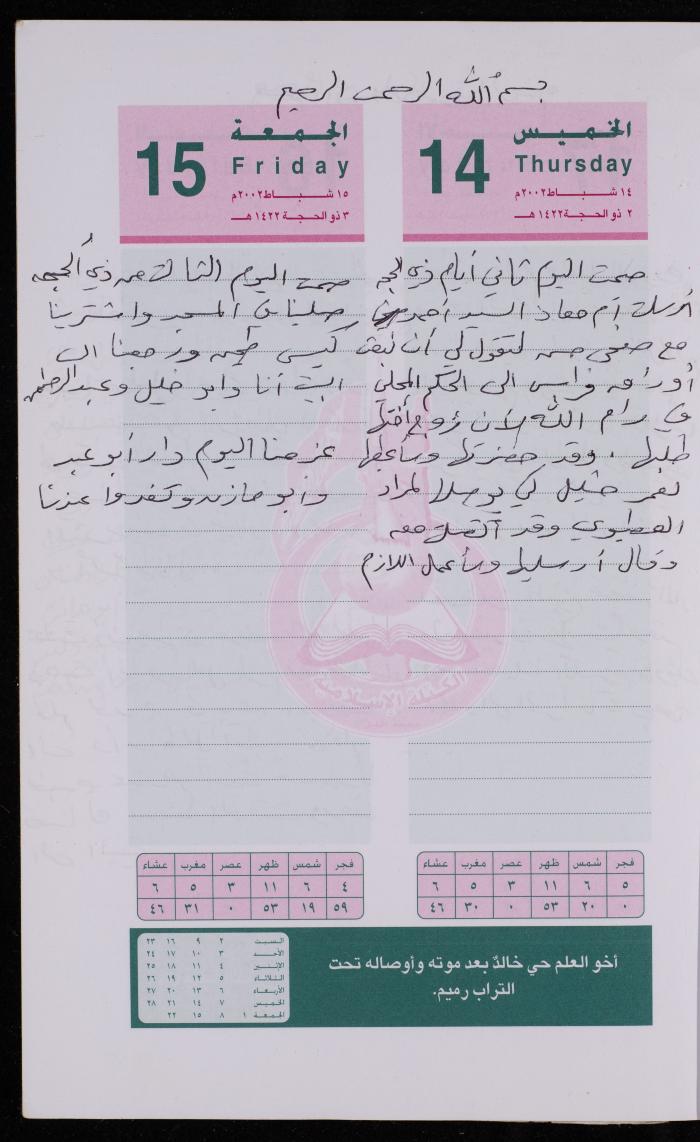 بسم الله الرحمن الرحيم
الخميس
14
Thursday
١٤ شباط ٢٠٠٢م
٢ ذو الحجة ١٤٢٢هـ
صمت اليوم ثاني أيام ذي الحجه
أرسلت أم معاذ السيد أحمد
مع لتقول لي أن
أوراق فراس الى الحكم المحلي
في رام الله لأن زوج أختها
طلبها . وقد حضرتها وسأعطها
لعمر خليل كي يوصلها لمراد
وقد اتصلت معه
وقال أرسلها وسأعمل اللازم
الجمعة
15
Friday
١٥ شباط ٢٠٠٢م
٣ ذو الحجة ١٤٢٢هـ
صمت اليوم الثالث من ذي الحجه
صلينا في المسجد واشترينا
كيس طحين ورجعنا الى
البيت أنا وابو خليل وعبد الرحمن
عزمنا اليوم دار أبو عبد
وأبو مازن وتغدوا عندنا
فجر شمس ظهر عصر مغرب عشاء
٥ ٦ ١١ ٣ ٥ ٦
٠ ٢٠ ٥٣ ٠ ٣٠ ٤٦
فجر شمس ظهر عصر مغرب عشاء
٤ ٦ ١١ ٣ ٥ ٦
٥٩ ١٩ ٥٣ ٠ ٣١ ٤٦
أخو العلم حي خالدٌ بعد موته وأوصاله تحت
التراب رميم.
السبت ٢ ٩ ١٦ ٢٣
الأحد ٣ ١٠ ١٧ ٢٤
الإثنين ٤ ١١ ١٨ ٢٥
الثلاثاء ٥ ١٢ ١٩ ٢٦
الأربعاء ٦ ١٣ ٢٠ ٢٧
الخميس ٧ ١٤ ٢١ ٢٨
الجمعة ١ ٨ ١٥ ٢٢